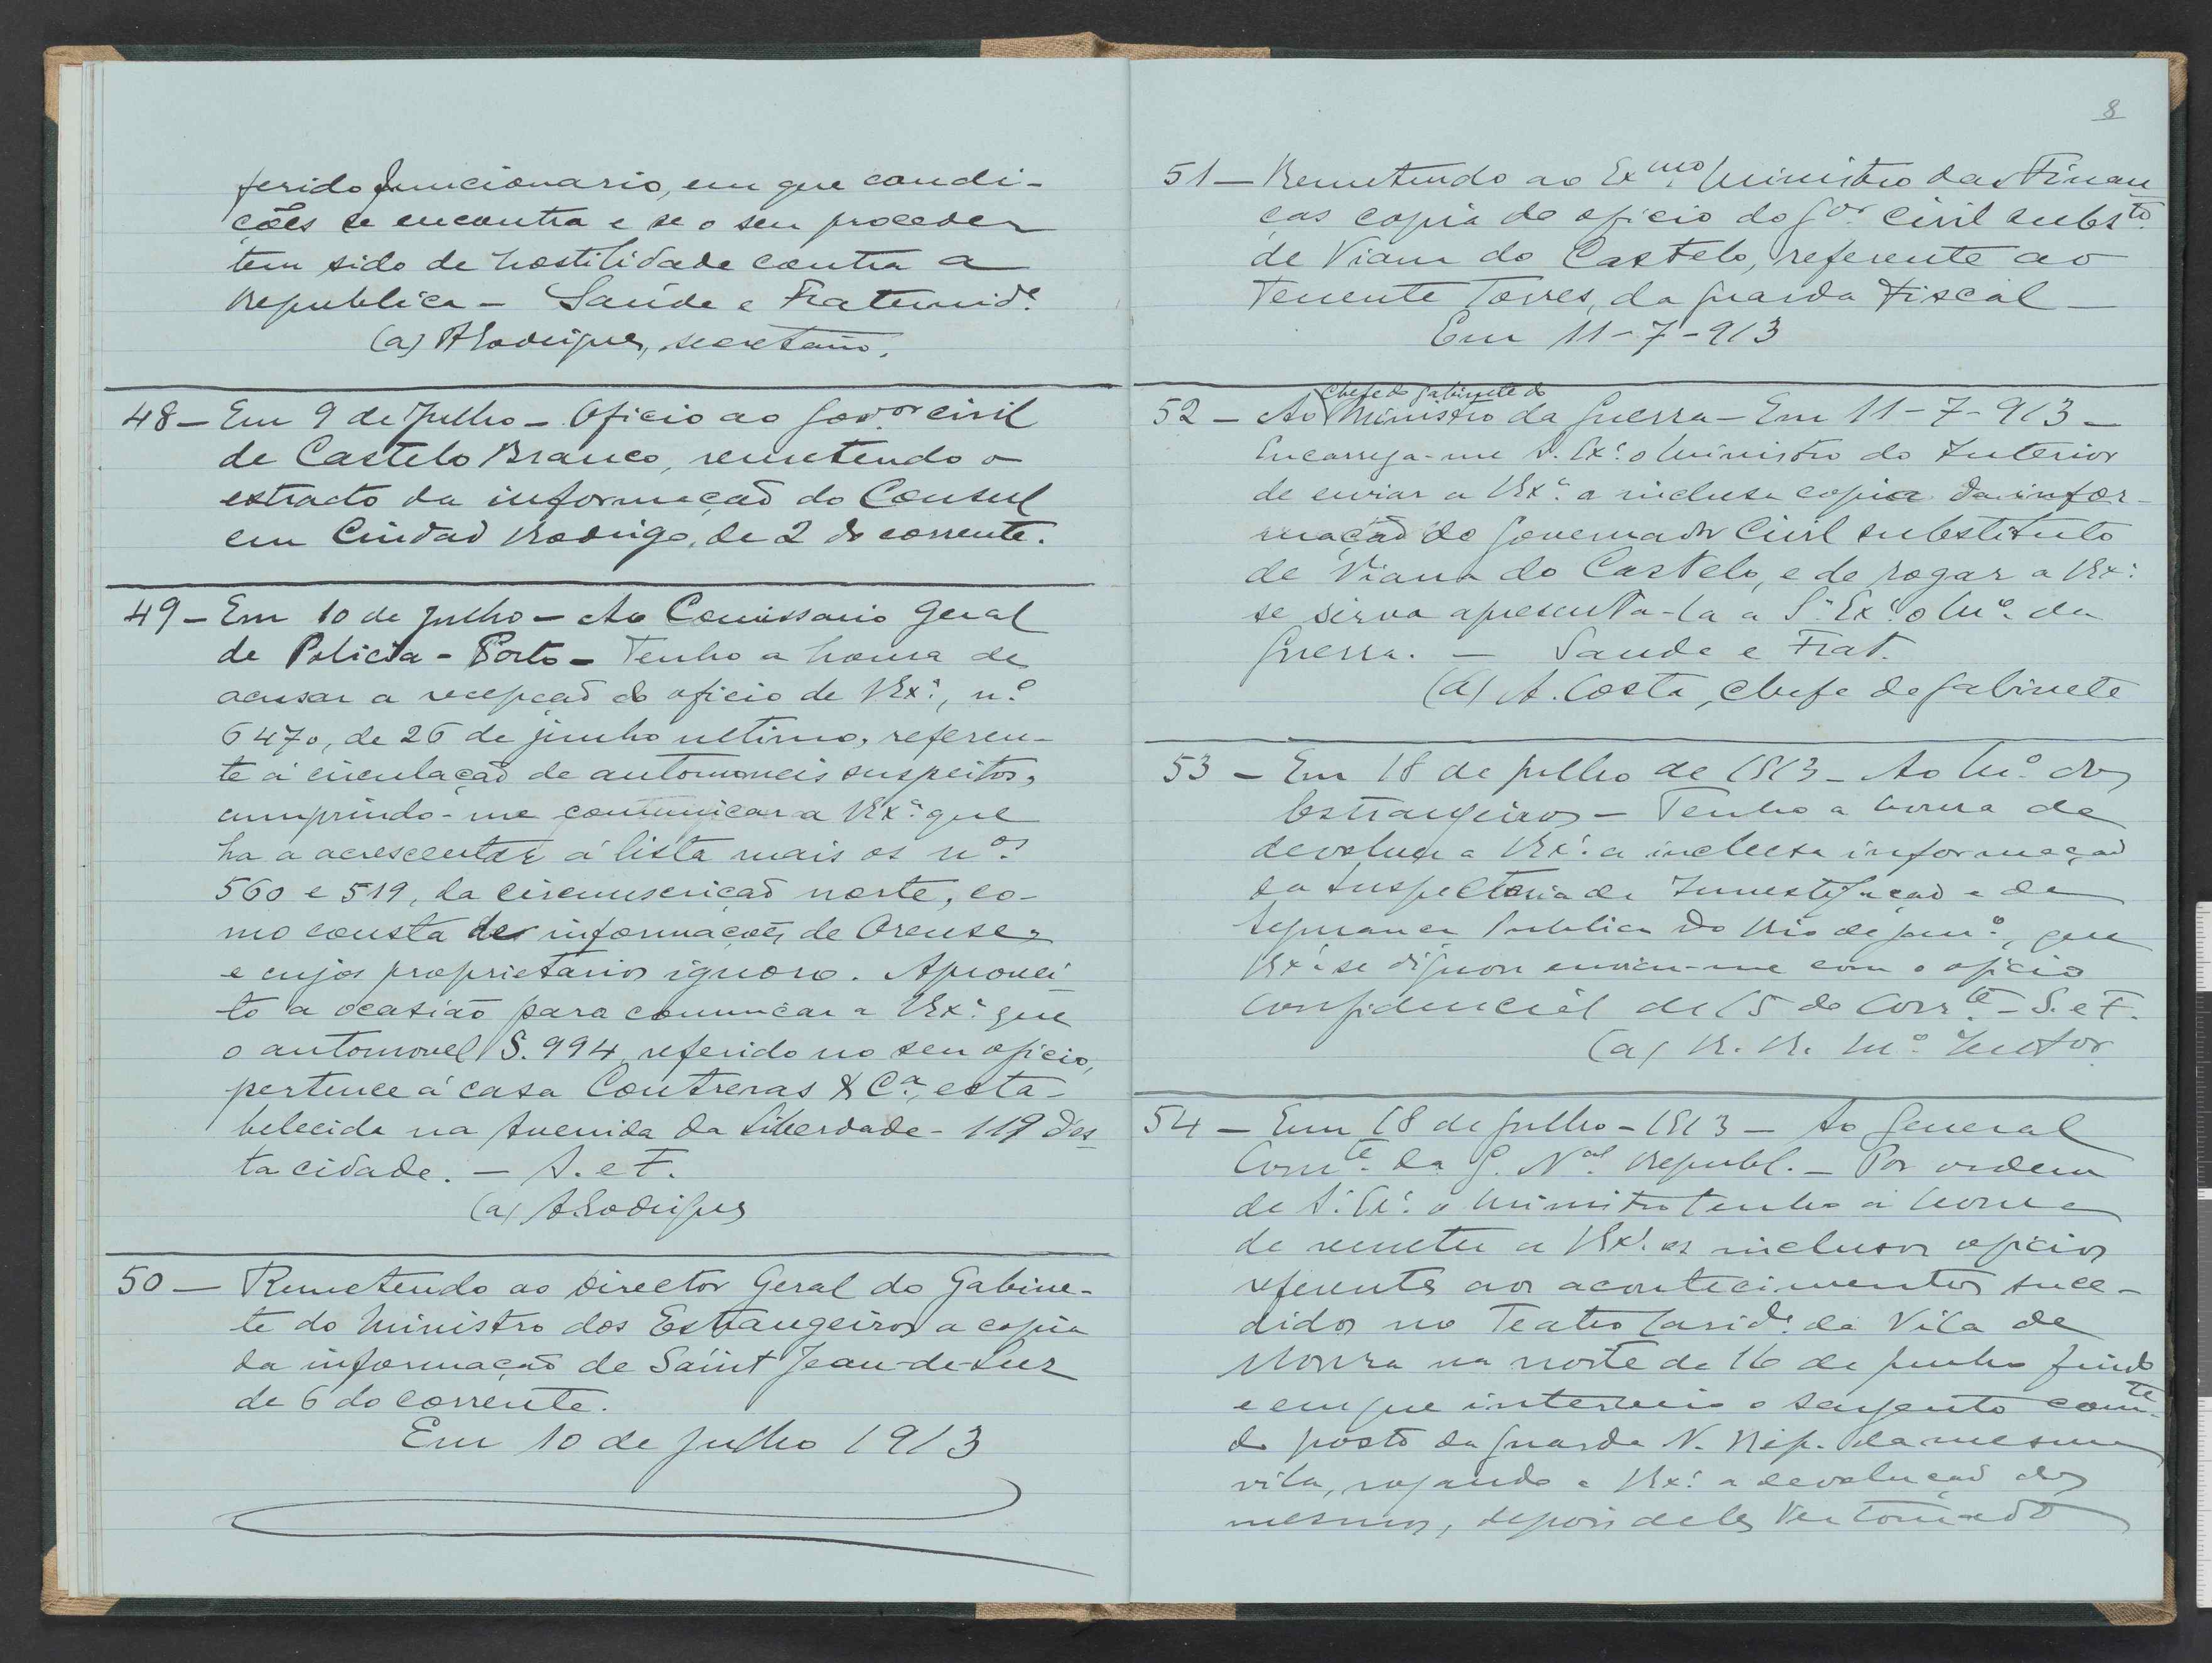 ferido funcionario, em que condi-
ções se encontra e se o seu proceder
tem sido de hostilidade contra a
Republica - Saúde e Fraternid.e
(a) ARodrigues, secretario.
48 - Em 9 de Julho - Oficio ao Gov.or civil
de Castelo Branco, remetendo o
extracto da informação do Consul
em Ciudad Rodrigo, de 2 do corrente.
49 - Em 10 de Julho - Ao Comissario Geral
de Policia - Porto - Tenho a honra de
acusar a recepção do oficio de V.Ex.ª, n.º
6470, de 26 de junho ultimo, referen-
te á circulação de automoveis suspeitos,
cumprindo-me comunicar a V.Ex.ª que
ha a acrescentar á lista mais os n.os
560 e 519, da circunscrição norte, co-
mo consta das informações de Orense,
e cujos proprietarios ignoro. Aprovei-
to a ocasião para comunicar a V.Ex.ª que
o automovel S. 994, referido no seu oficio,
pertence á casa Contreras & C.ª, esta-
belecida na Avenida da Liberdade - 119 des-
ta cidade. - S. e F.
(a) ARodrigues
50 - Remetendo ao Director Geral do Gabine-
te do Ministro dos Estrangeiros a copia
da informação de Saint Jean-de-Luz
de 6 do corrente.
Em 10 de Julho 1913
8
51 - Remetendo ao Ex.mo Ministro das Finan
ças copia do oficio do G.or Civil subst.to
de Viana do Castelo, referente ao
Tenente Torres, da Guarda Fiscal -
Em 11-7-913
52 - Ao Chefe do Gabinete do Ministro da Guerra - Em 11-7-913 -
Encarrega-me S. Ex.ª o Ministro do Interior
de enviar a V.Ex.ª a inclusa copia da infor-
mação do Governador Civil substituto
de Viana do Castelo, e de rogar a V.Ex.ª
se sirva apresenta-la a S.ª Ex.ª o M.º da
Guerra. - Saude e Frat.
(a) A. Costa, Chefe do Gabinete
53 - Em 18 de Julho de 1913 - Ao M.º dos
Estrangeiros - Tenho a honra de
devolver a V.Ex.ª a inclusa informação
da Inspectoria de Investigação e de
Segurança Publica do Rio de Jan.º, que
V.Ex.ª se dignou enviar-me com o oficio
confidencial de 15 do corr.te - S. e F.
(a) R. R. M.º Interior
54 - Em 18 de Julho - 1913 - Ao General
Com.te da G. N.al Republ. - Por ordem
de S. Ex.ª o Ministro tenho a honra
de remeter a V.Ex.ª os inclusos oficios
referentes aos acontecimentos suce-
didos no Teatro Carid.e da Vila de
Moura na noite de 16 de Junho findo
e em que interveio o sargento com.te
do posto da Guarda N. Rep. da mesma
vila, rogando a V.Ex.ª a devolução dos
mesmos, depois deles ter tomado